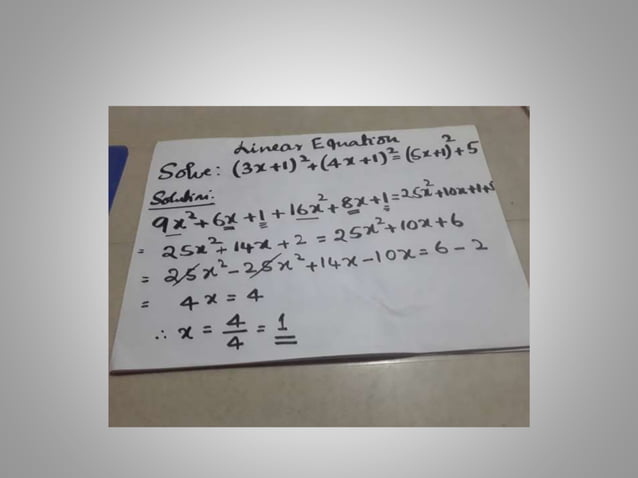 Linear Equation
Solve: (3x+1)²+(4x+1)²=(5x+1)²+5
Solution:
9x²+6x+1+16x²+8x+1=25x²+10x+1+5
= 25x²+14x+2=25x²+10x+6
= 25x²-25x²+14x-10x=6-2
= 4x=4
∴ x = 4/4 = 1